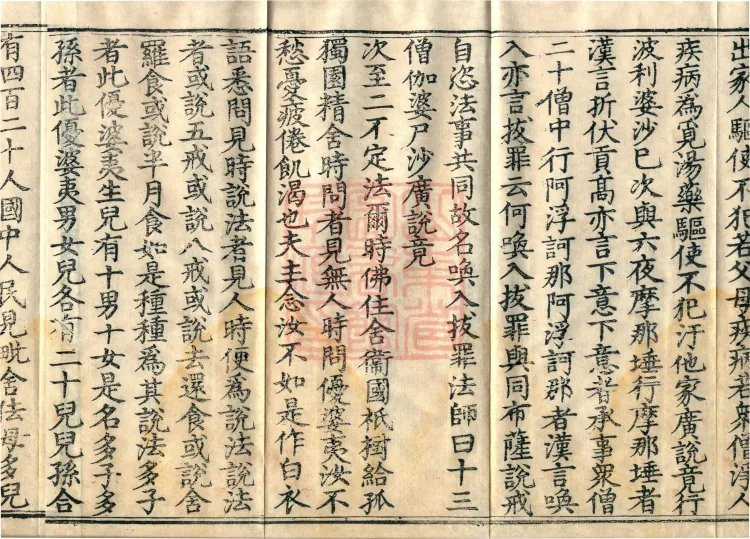 出家人驅使不犯若父母疾病若衆僧淨人
疾病為覓湯藥驅使不犯汙他家廣說竟行
波利婆沙已次與六夜摩那埵行摩那埵者
漢言折伏貢髙亦言下意下意者承事衆僧
二十僧中行阿浮訶那阿浮訶那者漢言喚
入亦言拔罪云何喚入拔罪與同布薩說戒
自恣法事共同故名喚入拔罪法師曰十三
僧伽婆尸沙廣說竟
次至二不定法爾時佛住舍衞國祇樹給孤
獨園精舍時問者見無人時問優婆夷汝不
愁憂疲倦飢渴也夫主念汝不如是作白衣
語悉問見時說法者見人時便為說法說法
者或說五戒或說八戒或說去還食或說舍
羅食或說半月食如是種種為其說法多子
者此優婆夷生兒有十男十女是名多子多
孫者此優婆夷男女兒各有二十兒兒孫合
有四百二十人國中人民見毗舍佉母多兒